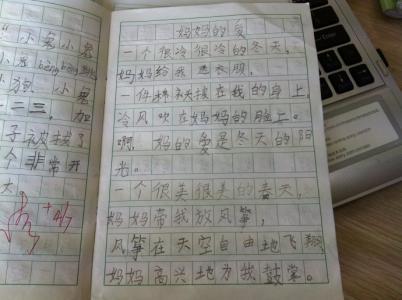 妈妈的爱
一个很冷很冷的冬天，
妈妈给我送衣服，
一件在我的身上，
冷风吹在妈妈的脸上。
啊！妈的爱是冬天的阳
光。
一个很美很美的春天，
妈妈带我放风筝，
风筝在天空自由地飞翔
妈妈高兴地为我鼓掌。
小狗 小
二二三，加
个非常开